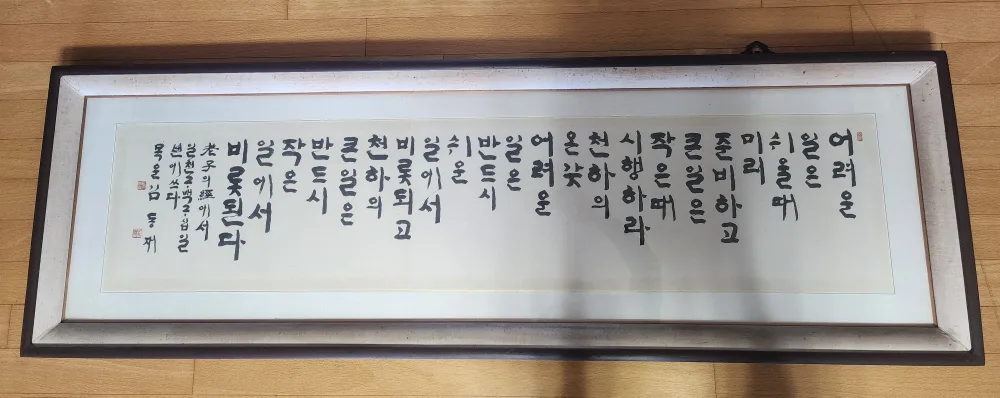 어려운
일은
쉬울때
미리
준비하고
큰일은
작은때
시행하라
천하의
온갖
어려운
일은
반드시
쉬운
일에서
비롯되고
천하의
큰일은
반드시
작은
일에서
비롯된다
老子의 經에서
년에 쓰다
김동재